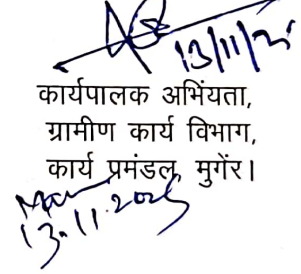 13/11/25
कार्यपालक अभियंता,
ग्रामीण कार्य विभाग,
कार्य प्रमंडल, मुगेंर।
13.11.2025